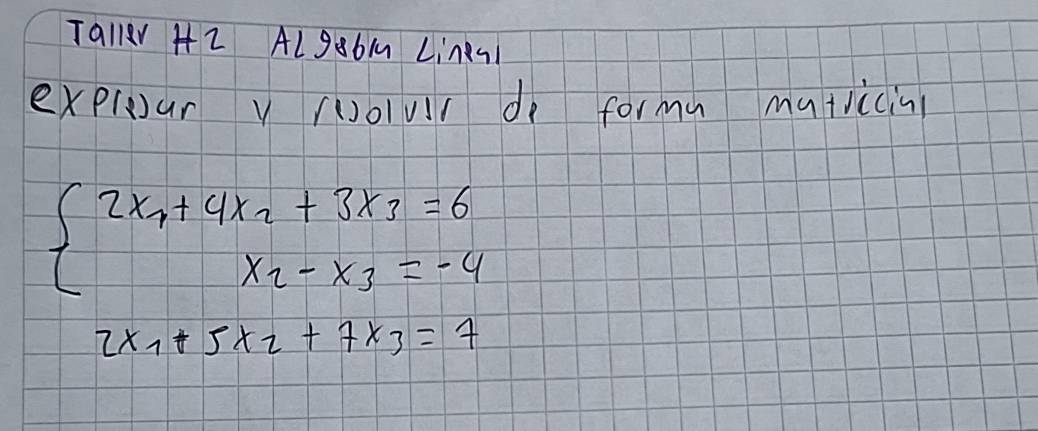 Taller #2 Algebra Lineal
expresar y resolver de forma matricial
2x₁ + 4x₂ + 3x₃ = 6
x₂ - x₃ = -4
2x₁ + 5x₂ + 7x₃ = 7